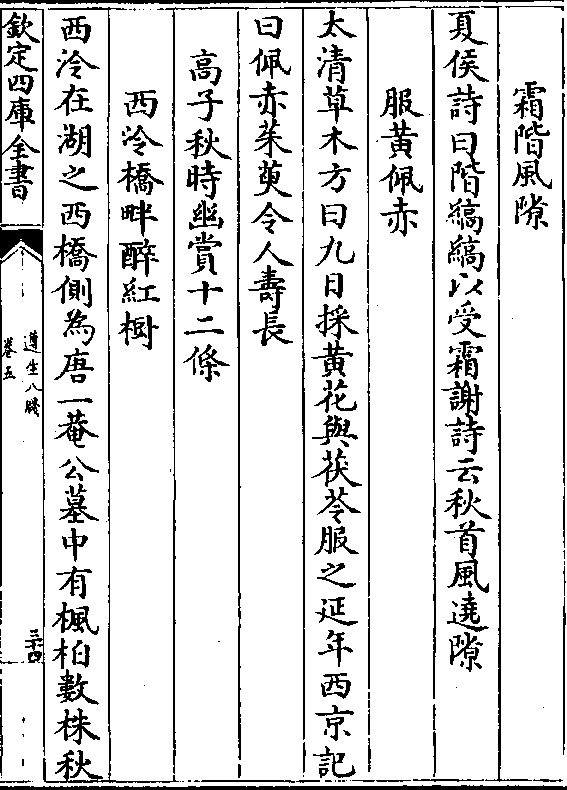 霜階風隙
夏侯詩曰階縞縞以受霜謝詩云秋首風遶隙
服黃佩赤
太清草木方曰九日採黃花與茯苓服之延年西京記
曰佩赤茱萸令人壽長
高子秋時幽賞十二條
西泠橋畔醉紅樹
西泠在湖之西橋側為唐一菴公墓中有楓柏數株秋
欽定四庫全書
遵生八牋
卷五
三十四